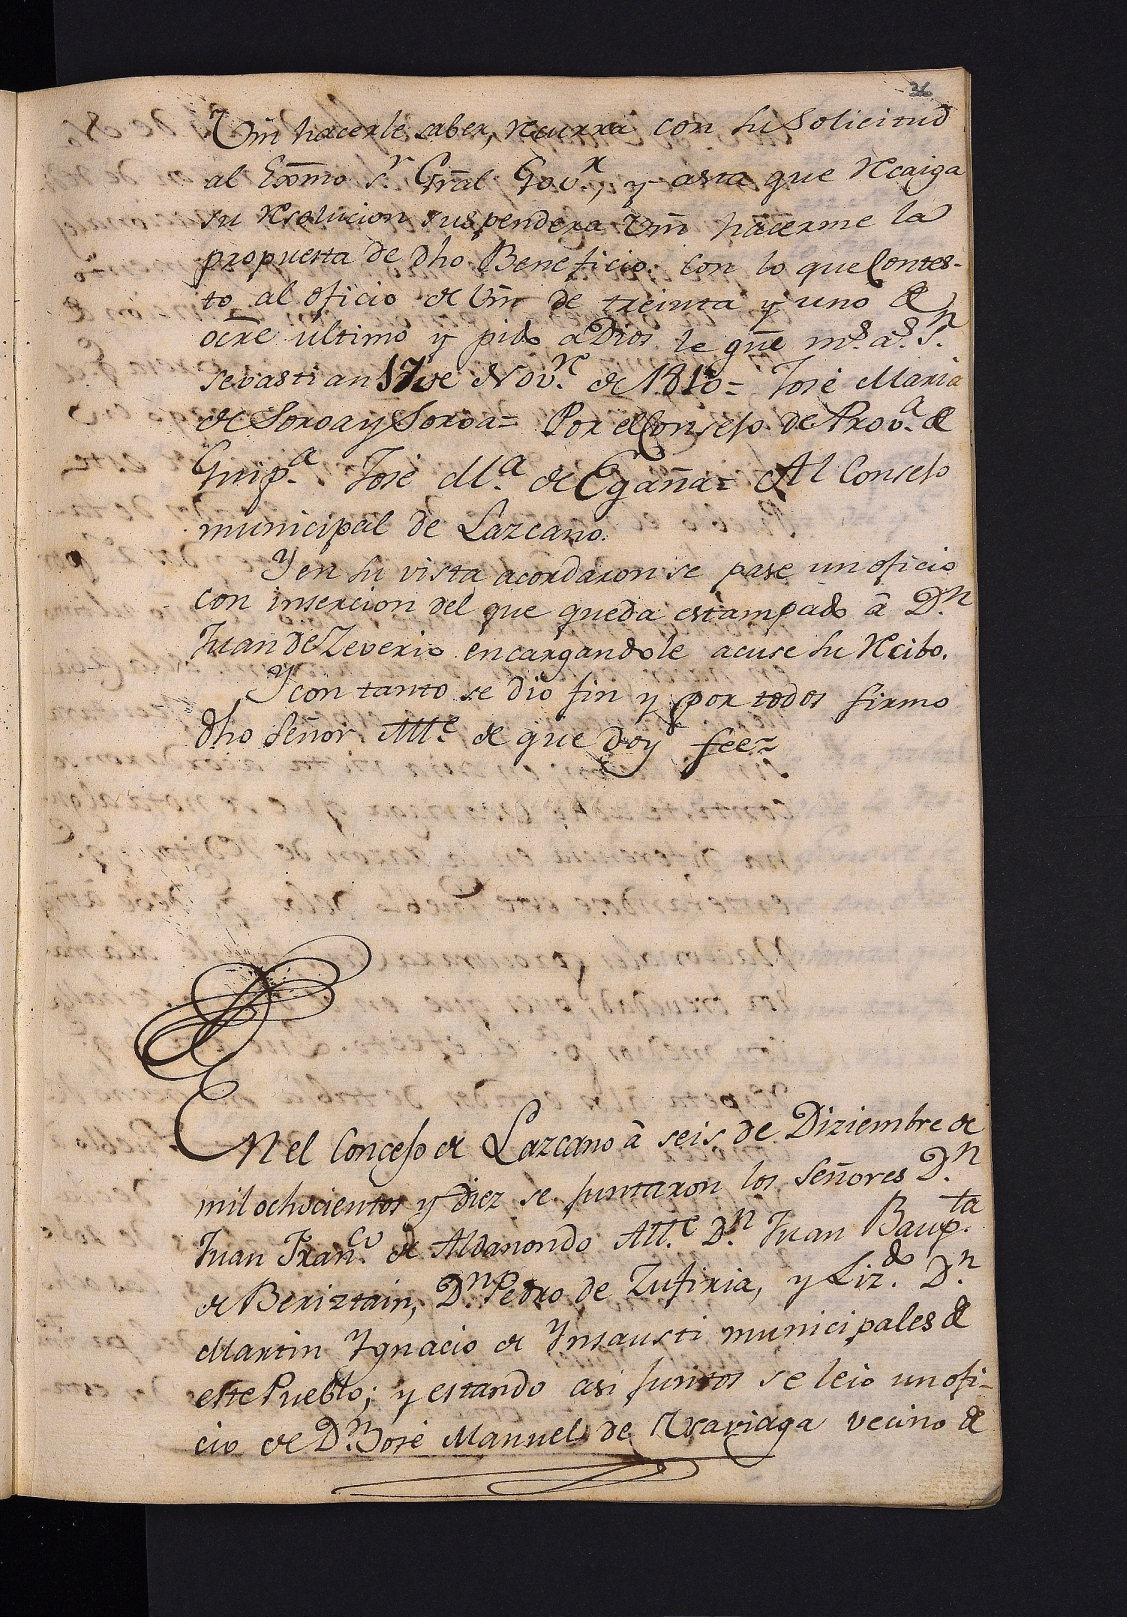 36
Vm̃ hacerle saber, recurra con su Solicitud
al Exm̃o S.r Grāl Gov.r, y asta que recaiga
su resolucion suspendera Vm̃ hacerme la
propuesta de dho Beneficio: con lo que Contes-
to al oficio de Vm̃ de treinta y uno de
ocr̃e último y pido a Dios le gũe m.s a.s S.n
Sevastian 17 de Nov.re de 1810= José Maria
de Soroa y Soroa= Por el Consejo de Prov.a de
Guip.a José M.a de Egaña= Al Consejo
municipal de Lazcano.
Y en su vista acordaron se pase un oficio
con insercion del que queda estampado â D.n
Juan de Zeverio encargandole acuse su recibo.
Y con tanto se dio fin y por todos firmo
dho Señor All.e de que doy fee=
En el Concejo de Lazcano â seis de Diziembre de
mil ochocientos y Diez se juntaron los Señores D.n
Juan Fran.co de Aldanondo All.e D.n Juan Baup.ta
de Beriztain, D.n Pedro de Zufiria, y Liz.do D.n
Martin Ygnacio de Ynsausti municipales de
este Pueblo; y estando asi juntos se leio un ofi-
cio de D.n José Manuel de vecino de